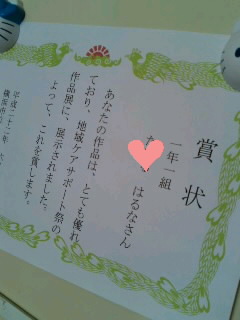 賞状
一年一組
はるなさん
あなたの作品は、とても優れ
ており、地域ケアサポート祭の
作品展に、展示されました。
よって、これを賞します。
平成二十二年
横浜市